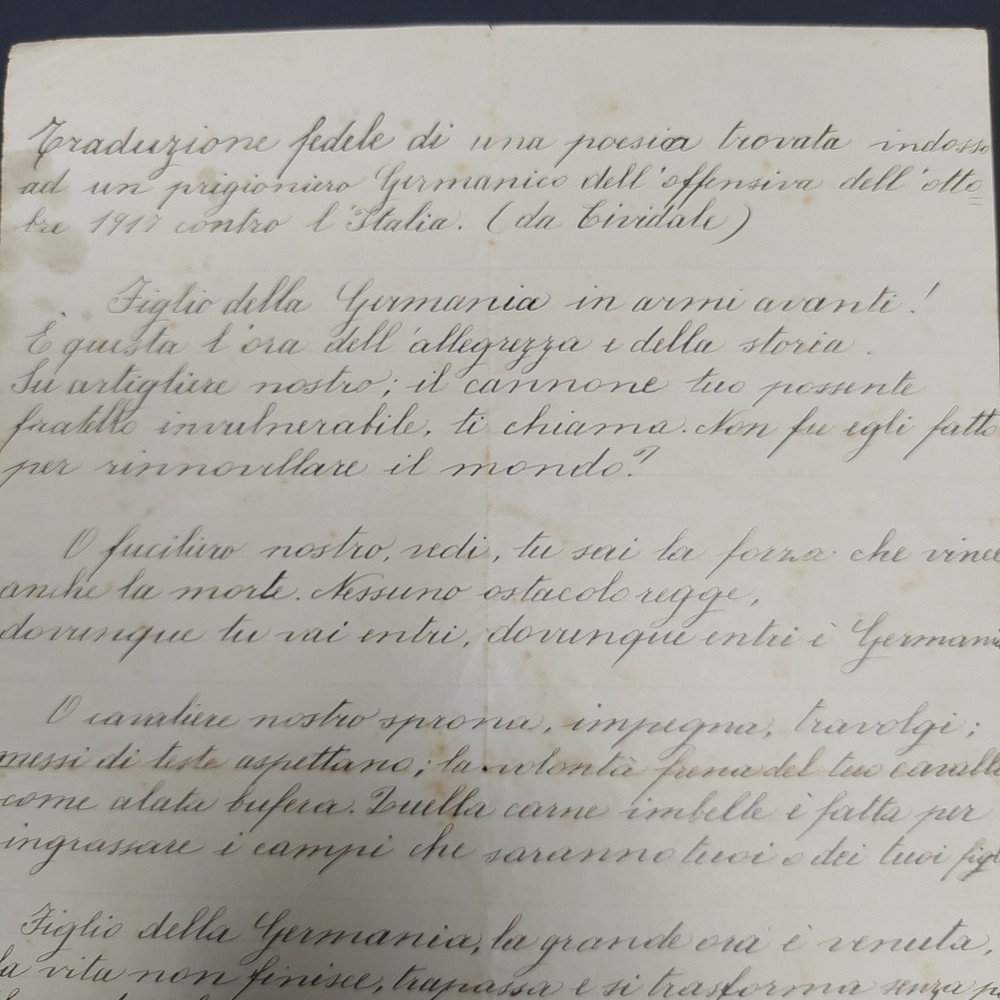 Traduzione fedele di una poesia trovata indosso
ad un prigioniero Germanico dell'offensiva dell'otto
bre 1917 contro l'Italia. (da Cividale)
Figlio della Germania in armi avanti!
È questa l'ora dell'allegrezza e della storia.
Su artigliere nostro; il cannone tuo possente
fratello invulnerabile, ti chiama. Non fu egli fatto
per rinnovellare il mondo?
O fuciliero nostro, vedi, tu sei la forza che vince
anche la morte. Nessuno ostacolo regge,
dovunque tu vai entri, dovunque entri è Germania
O cavaliere nostro sprona, impegna, travolgi;
messi di teste aspettano; la volontà frena del tuo cavallo
come alata bufera. Quella carne imbelle è fatta per
ingrassare i campi che saranno tuoi o dei tuoi figl
Figlio della Germania, la grande ora è venuta,
la vita non finisce, trapassa e si trasforma senza